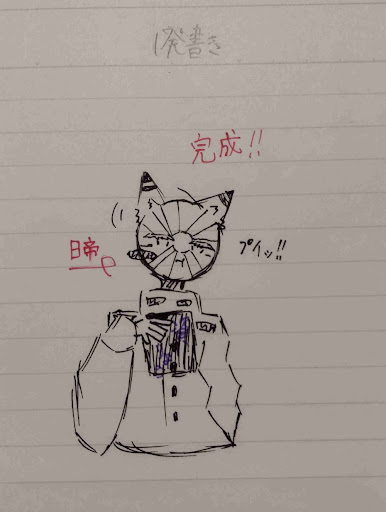 1発書き
完成!!
日帝
プイッ!!